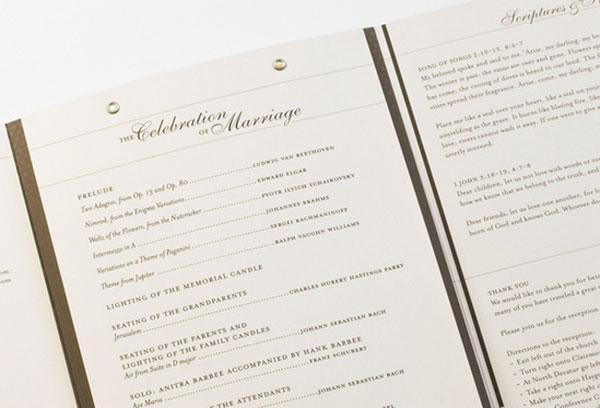 THE Celebration
OF Marriage
PRELUDE
Two Adagios, from Op. 13 and Op. 80 LUDWIG VAN BEETHOVEN
Nimrod, from the Enigma Variations EDWARD ELGAR
Waltz of the Flowers, from the Nutcracker PYOTR ILYICH TCHAIKOVSKY
Intermezzo in A JOHANNES BRAHMS
Variations on a Theme of Paganini SERGEI RACHMANINOFF
Theme from Jupiter RALPH VAUGHN WILLIAMS
LIGHTING OF THE MEMORIAL CANDLE
SEATING OF THE GRANDPARENTS
Jerusalem CHARLES HUBERT HASTINGS PARRY
SEATING OF THE PARENTS AND
LIGHTING OF THE FAMILY CANDLES
Air from Suite in D major JOHANN SEBASTIAN BACH
SOLO: ANITRA BARBEE ACCOMPANIED BY HANK BARBEE
Ave Maria FRANZ SCHUBERT
OF THE ATTENDANTS
JOHANN SEBASTIAN BACH
Scriptures &
SONG OF SONGS 2:10-13, 8:6-7
My beloved spoke and said to me, "Arise, my darling, my be
The winter is past; the rains are over and gone. Flowers
has come, the cooing of doves is heard in our land. The
vines spread their fragrance. Arise, come, my darling; my
Place me like a seal over your heart, like a seal on your
unyielding as the grave. It burns like blazing fire, like
love; rivers cannot wash it away. If one were to give
utterly scorned.
1 JOHN 3:18-19, 4:7-8
Dear children, let us not love with words or
how we know that we belong to the truth, and
Dear friends, let us love one another, for lo
born of God and knows God. Whoever do
THANK YOU
We would like to thank you for bei
many of you have traveled a great
Please join us for the reception
Directions to the reception:
- Exit left out of the church
- Turn right onto Clairm
- At North Decatur go left
- Take a right onto Hayg